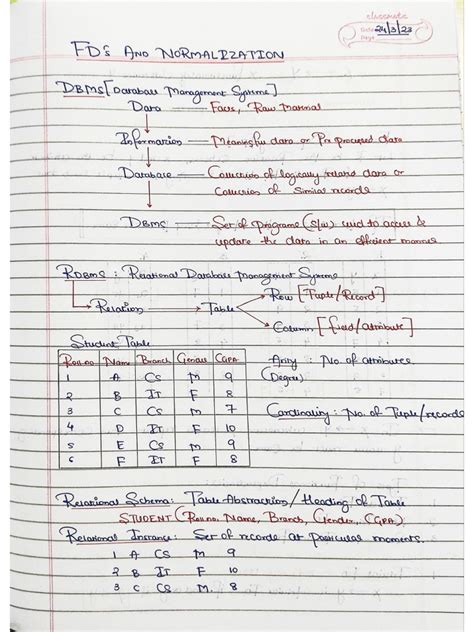 classmate
Date 24/3/23
Page
FD's AND NORMALIZATION
DBMS [Database Management System]
Data — Facts, Raw Material
Information — Meaningful data or Pre processed data
Database — Collection of logically related data or
Collection of similar records
DBMS — Set of programs (s/w) used to access &
update the data in an efficient manner
RDBMS : Relational Database Management System
Relation → Table
Row [Tuple/Record]
Column [field/attribute]
Student Table
Roll no Name Branch Gender CGPA
1 A CS M 9
2 B IT F 8
3 C CS M 7
4 D IT F 10
5 E CS M 9
6 F IT F 8
Arity : No. of attributes
(Degree)
Cardinality : No. of Tuple/records
Relational Schema: Table Abstraction / Heading of Table
STUDENT (Roll no. Name, Branch, Gender, CGPA)
Relational Instance: Set of records at particular moments.
1 A CS M 9
2 B IT F 10
3 C CS M. 8